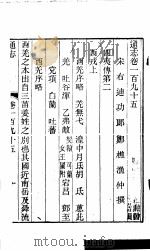 通志卷一百九十五
宋右迪功郎鄭樵漁仲撰
四夷傳第二
西戎上
西羌序略 羌無弋 湟中月氏胡 氐 葱茈
羌 吐谷渾 乙弗敵 宕昌 鄧至
党項 白蘭 吐蕃
西羌序略
西羌之本出自三苗姜姓之別也其國近南岳及舜流
通志 卷一百九十五